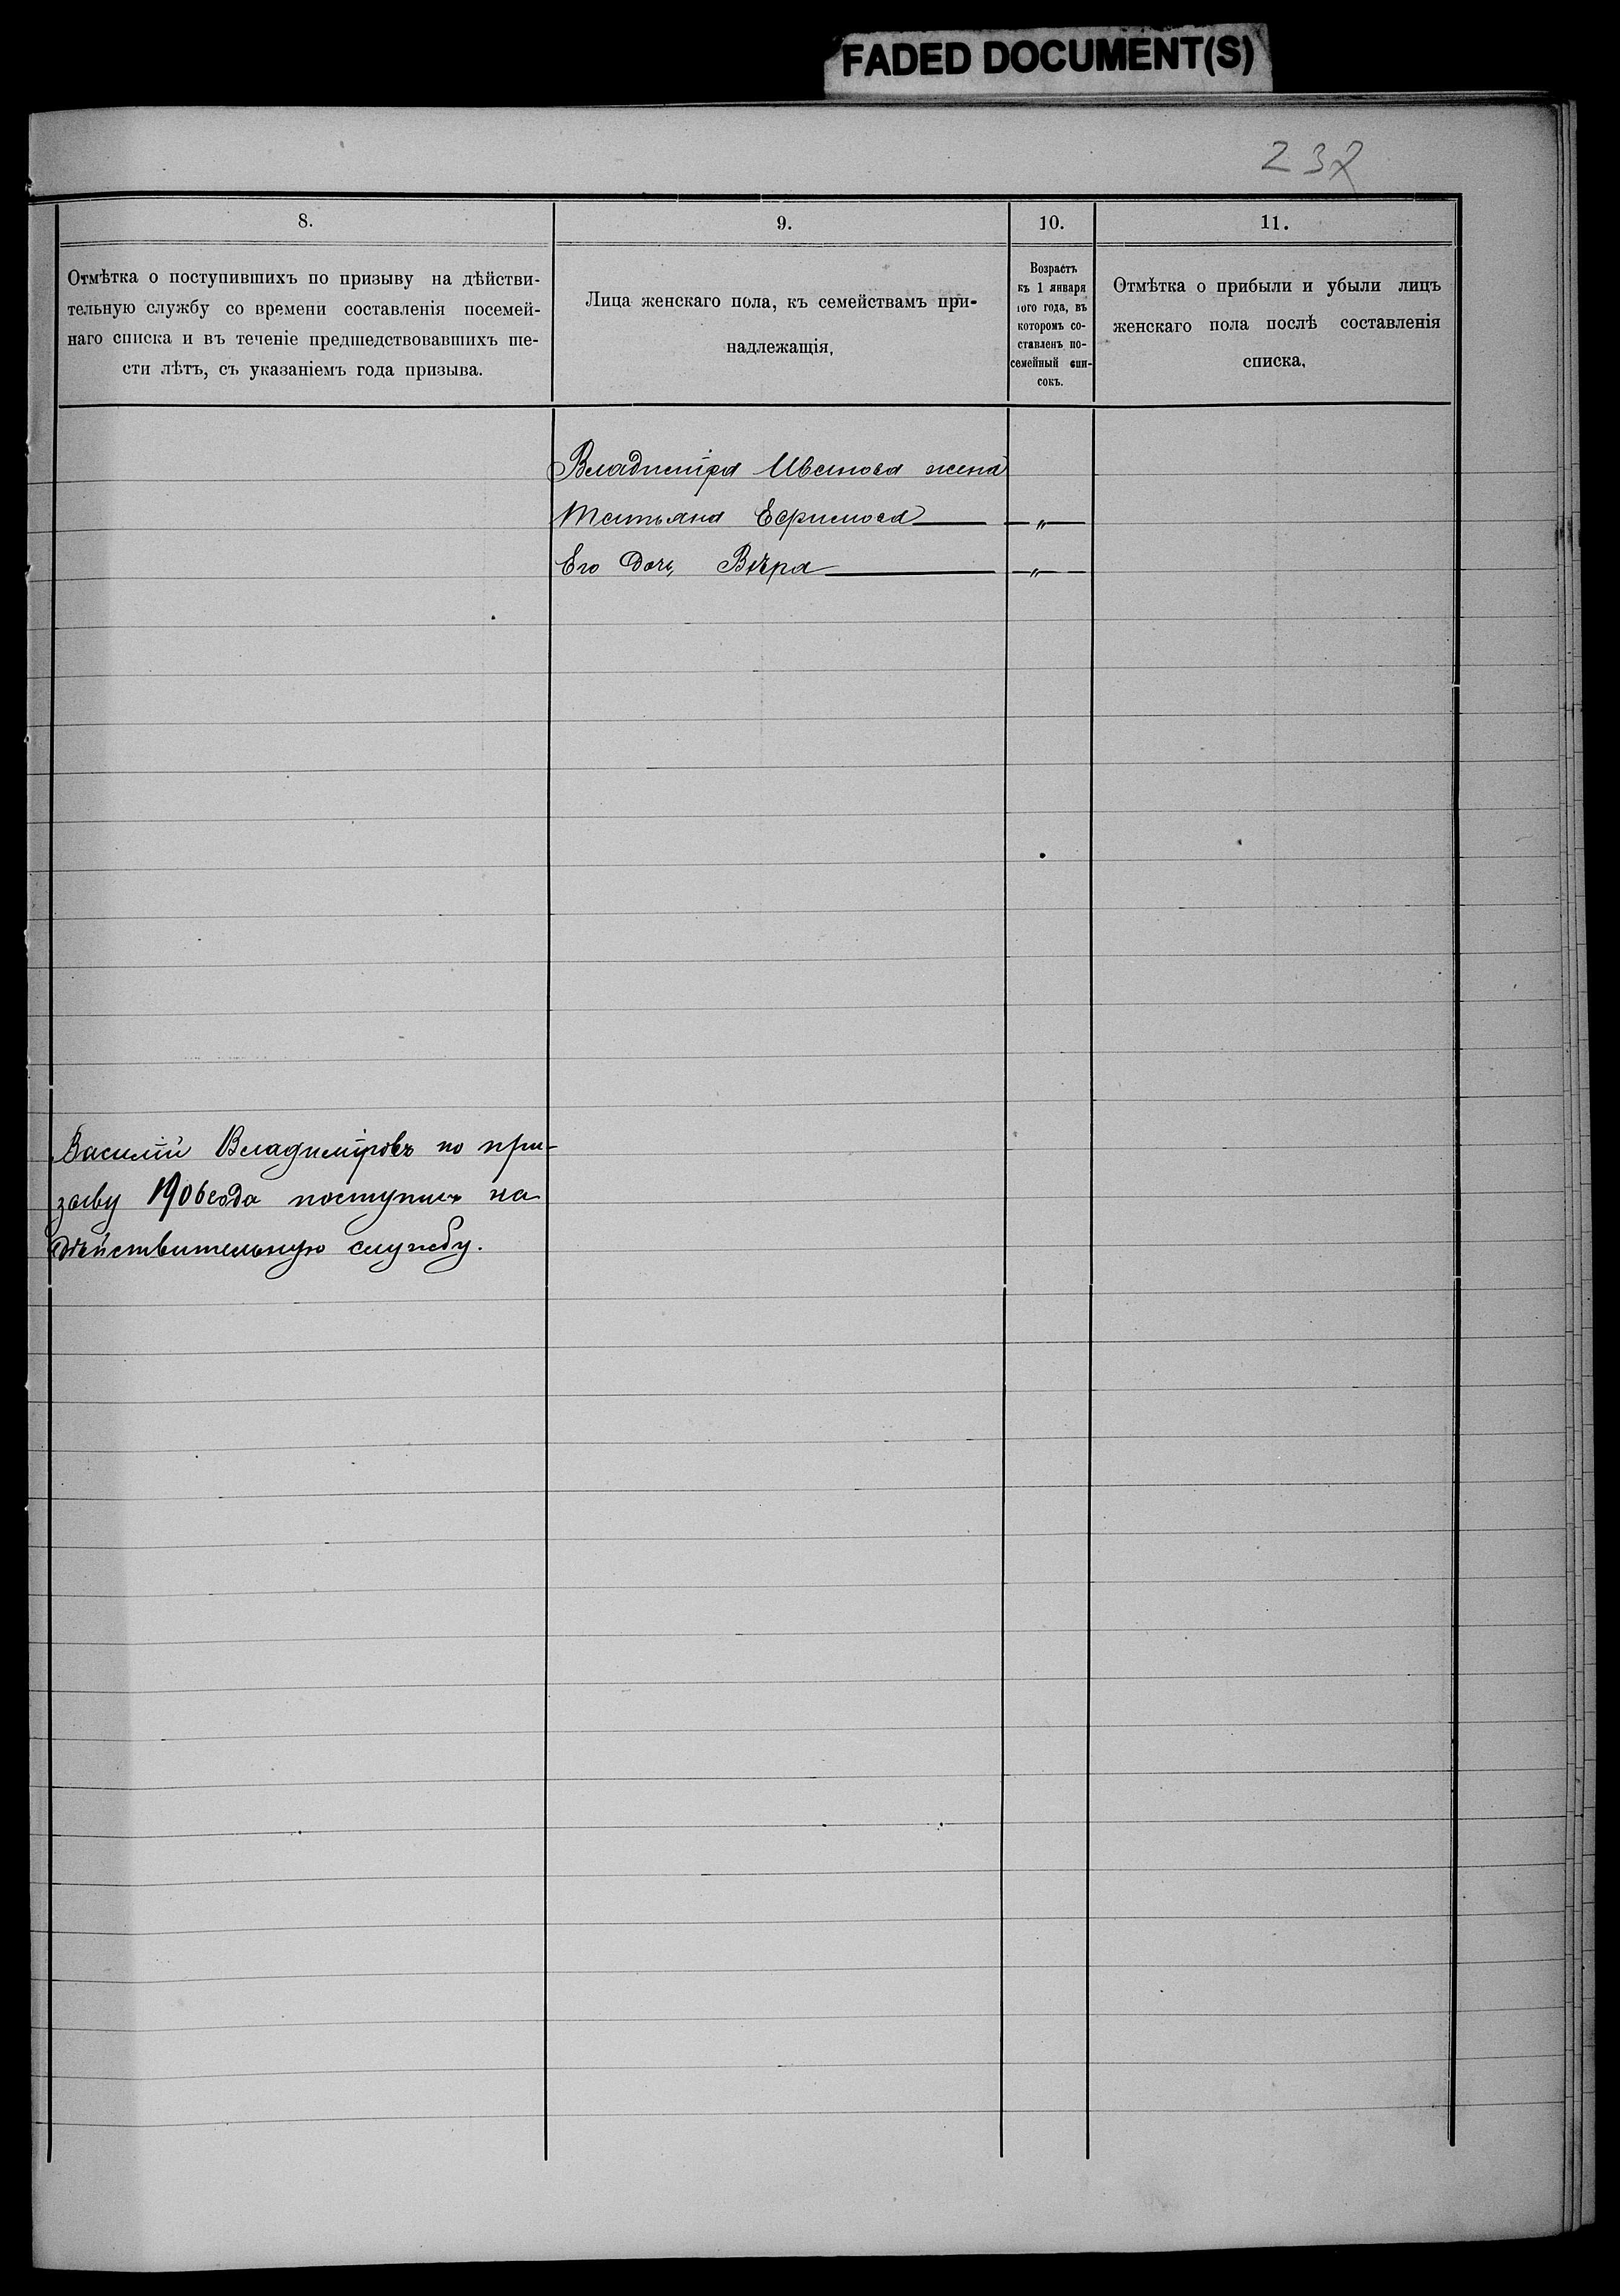 FADED DOCUMENT(S)
237
8.
Отмѣтка о поступившихъ по призыву на дѣйстви-
тельную службу со времени составленія посемей-
наго списка и въ теченіе предшедствовавшихъ ше-
сти лѣтъ, съ указаніемъ года призыва.
9.
Лица женскаго пола, къ семействамъ при-
надлежащія.
10.
Возрастъ
къ 1 января
того года, въ
которомъ со-
ставленъ по-
семейный спи-
сокъ.
11.
Отмѣтка о прибыли и убыли лицъ
женскаго пола послѣ составленія
списка.
Владиміра Иванова жена
Татьяна Ефимова — „ —
Его дочь Вѣра — „ —
Василій Владиміровъ по при-
зыву 1906 года поступилъ на
дѣйствительную службу.